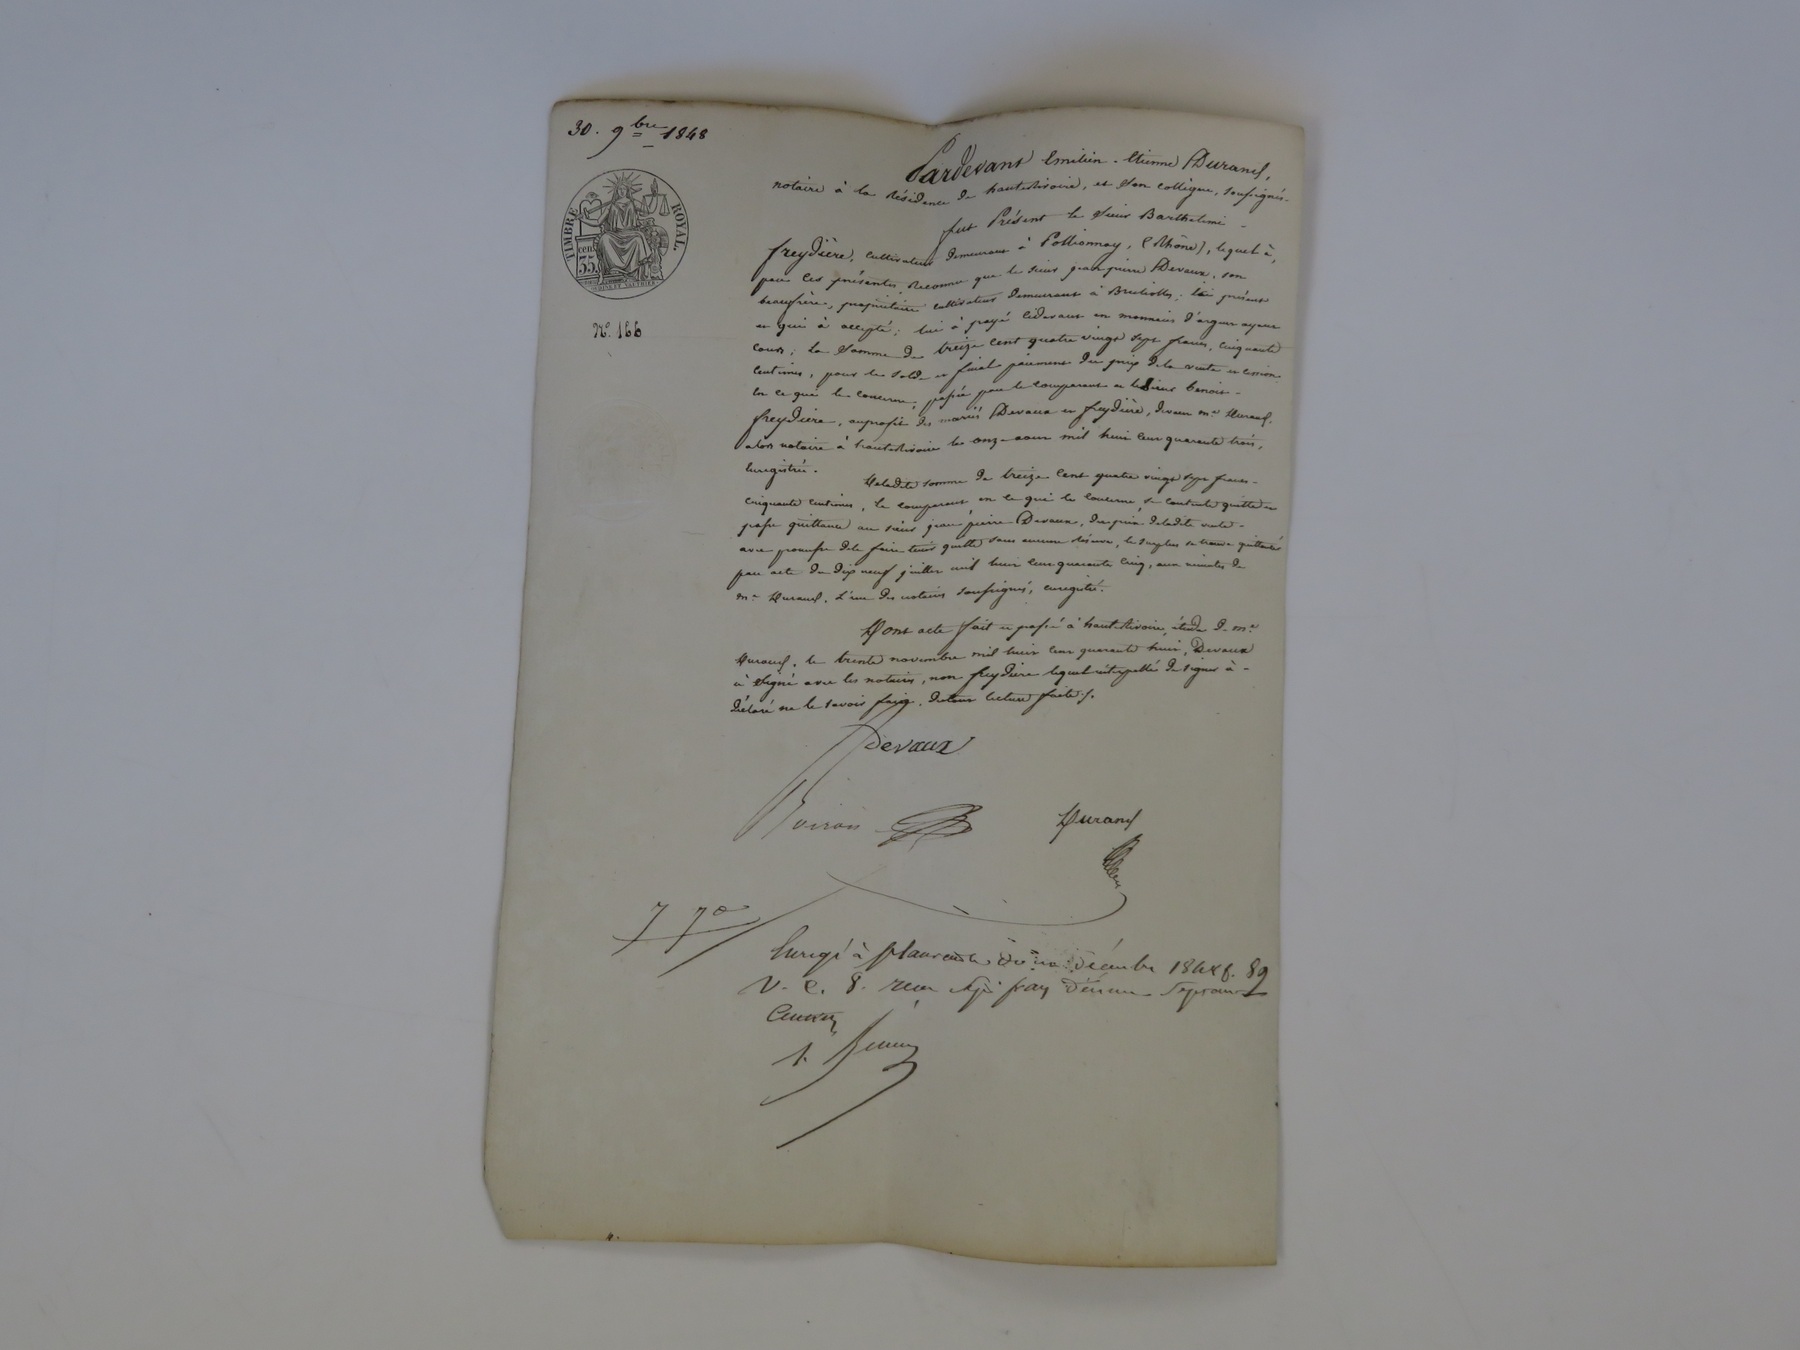 30. 9bre 1848
TIMBRE ROYAL.
cen. 35
No. 166
Pardevant Emilien-Etienne Durand,
notaire à la Résidence de hauterivoire, et son collègue, soussignés.
fut Présent le sieur Barthelemi
freydière, cultivateur demeurant à Pollionnay, (Rhône), lequel à,
par ces présentes, reconnu que le sieur jean pierre Devaux, son
beaufrère, propriétaire cultivateur demeurant à Brullioles, ici présent
et qui à accepté; lui à payé cidevant en monnaies d'argent ayant
cours; la Somme de treize cent quatre vingt sept francs, cinquante
centimes, pour le solde et final paiement du prix de la vente et cession
en ce qui le concerne, passée par le comparant et le sieur benoit
freydière, auprofit des mariés Devaux et freydière, devant me. Durand,
alors notaire à hauterivoire le onze aout mil huit cent quarante trois,
Enregistrée.
Deladite somme de treize cent quatre vingt sept francs
cinquante centimes, le comparant, en ce qui le concerne, se contente quitte et
passe quittance au sieur jean pierre Devaux, du prix deladite vente
avec promesse dele faire tenir quitte sans aucune réserve, le surplus se trouve quittancé
par acte du dix neuf juillet mil huit cent quarante cinq, aux minutes de
me. Durand, l'un des notaires soussignés, enregistré.
Dont acte fait et passé à hauterivoire, étude de me.
Durand, le trente novembre mil huit cent quarante huit, Devaux
à signé avec les notaires, non freydière lequel interpellé de signer à
déclaré ne le savoir faire, detout lecture faite.
Devaux
Voiron
Durand
7 70
Enregé à St Laurent le décembre 1848 f. 89
V. C. 8. reçu sept francs décime Septante
Centes